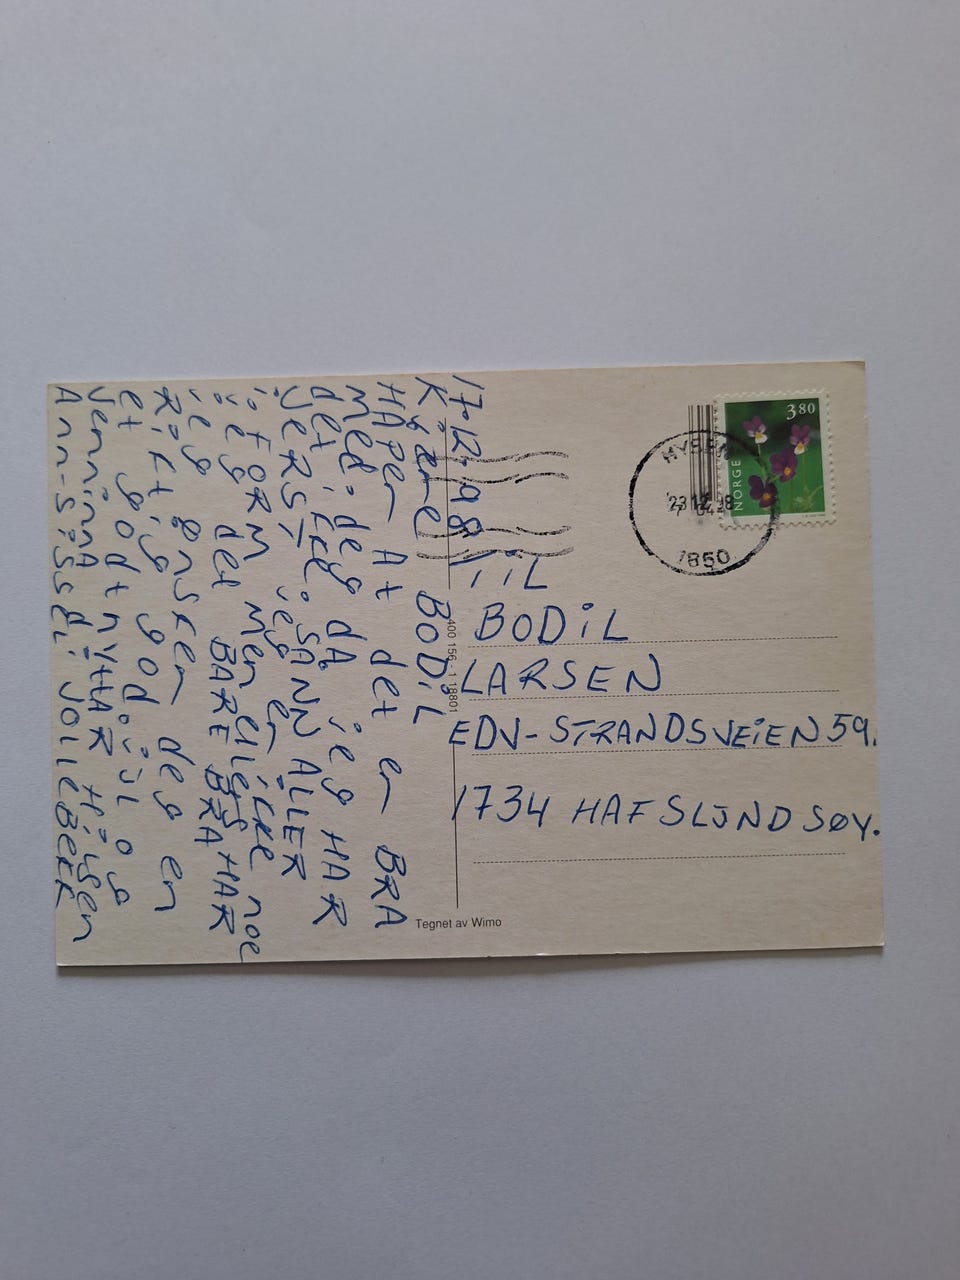 17-12-98
KJÆRE BODIL
HÅPER At det er BRA
Med deg dÅ jeg HAR
det ikke SÅNN ALLER
VERST jeg er ikke noe
i FORM Men ellers HAR
jeg det BARE BRA
jeg Ønsker deg en
Riktig god jul og
et godt nyttÅR Hilsen
VenninnA
Ann-Sissel
TiL
BODiL
LARSEN
EDV-STRANDSVEiEN 59.
1734 HAFSLUNDSØY.
NORGE 380
MYSEN
23 12 98
1850
400 156 - 1 18801
Tegnet av Wimo